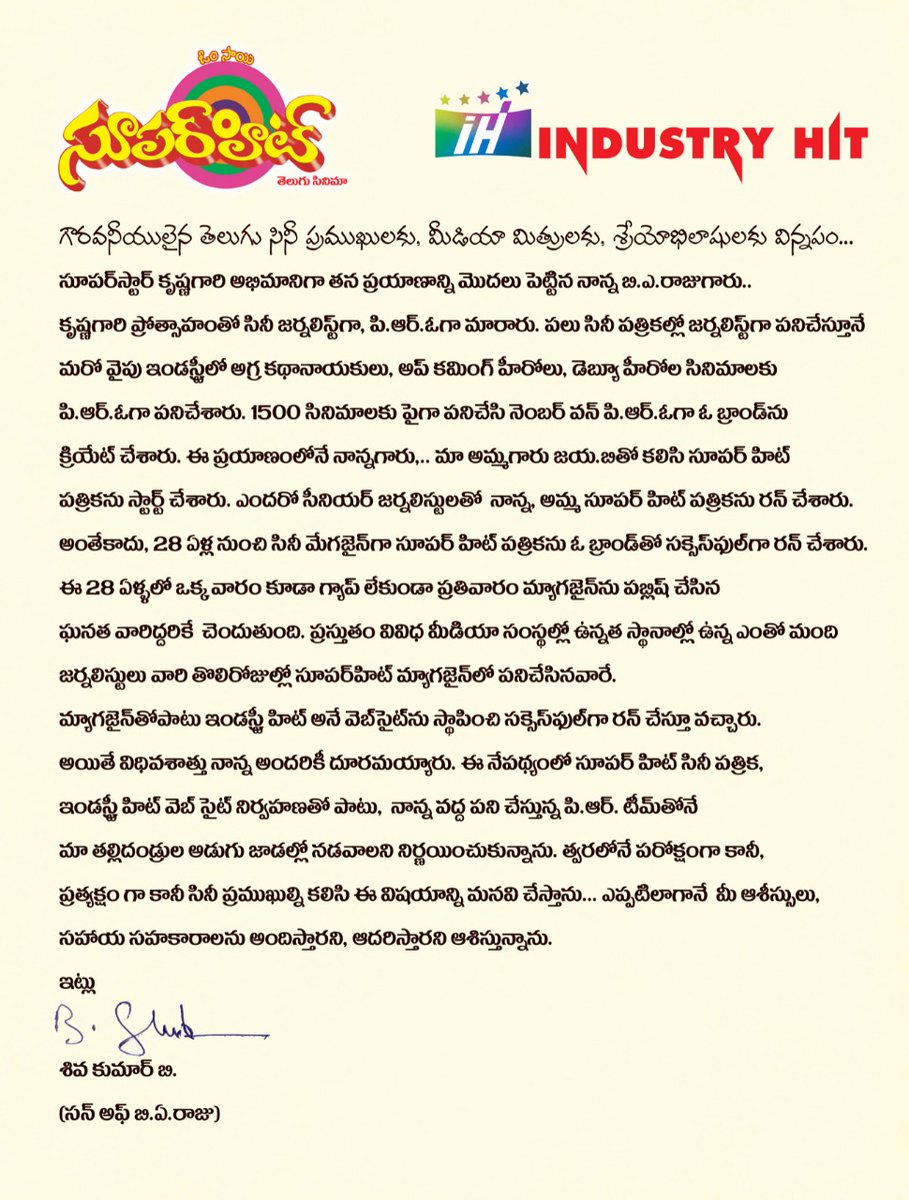 ఓం సాయి
సూపర్‌హిట్
తెలుగు సినిమా
iH INDUSTRY HIT
గౌరవనీయులైన తెలుగు సినీ ప్రముఖులకు, మీడియా మిత్రులకు, శ్రేయోభిలాషులకు విన్నపం...
సూపర్‌స్టార్ కృష్ణగారి అభిమానిగా తన ప్రయాణాన్ని మొదలు పెట్టిన నాన్న బి.ఎ.రాజుగారు..
కృష్ణగారి ప్రోత్సాహంతో సినీ జర్నలిస్ట్‌గా, పి.ఆర్.ఓగా మారారు. పలు సినీ పత్రికల్లో జర్నలిస్ట్‌గా పనిచేస్తూనే
మరో వైపు ఇండస్ట్రీలో అగ్ర కథానాయకులు, అప్ కమింగ్ హీరోలు, డెబ్యూ హీరోల సినిమాలకు
పి.ఆర్.ఓగా పనిచేశారు. 1500 సినిమాలకు పైగా పనిచేసి నెంబర్ వన్ పి.ఆర్.ఓగా ఓ బ్రాండ్‌ను
క్రియేట్ చేశారు. ఈ ప్రయాణంలోనే నాన్నగారు,.. మా అమ్మగారు జయ.బితో కలిసి సూపర్ హిట్
పత్రికను స్టార్ట్ చేశారు. ఎందరో సీనియర్ జర్నలిస్టులతో నాన్న, అమ్మ సూపర్ హిట్ పత్రికను రన్ చేశారు.
అంతేకాదు, 28 ఏళ్ల నుంచి సినీ మేగజైన్‌గా సూపర్ హిట్ పత్రికను ఓ బ్రాండ్‌తో సక్సెస్‌ఫుల్‌గా రన్ చేశారు.
ఈ 28 ఏళ్ళలో ఒక్క వారం కూడా గ్యాప్ లేకుండా ప్రతివారం మ్యాగజైన్‌ను పబ్లిష్ చేసిన
ఘనత వారిద్దరికే చెందుతుంది. ప్రస్తుతం వివిధ మీడియా సంస్థల్లో ఉన్నత స్థానాల్లో ఉన్న ఎంతో మంది
జర్నలిస్టులు వారి తొలిరోజుల్లో సూపర్‌హిట్ మ్యాగజైన్‌లో పనిచేసినవారే.
మ్యాగజైన్‌తోపాటు ఇండస్ట్రీ హిట్ అనే వెబ్‌సైట్‌ను స్థాపించి సక్సెస్‌ఫుల్‌గా రన్ చేస్తూ వచ్చారు.
అయితే విధివశాత్తు నాన్న అందరికీ దూరమయ్యారు. ఈ నేపథ్యంలో సూపర్ హిట్ సినీ పత్రిక,
ఇండస్ట్రీ హిట్ వెబ్ సైట్ నిర్వహణతో పాటు, నాన్న వద్ద పని చేస్తున్న పి.ఆర్. టీమ్‌తోనే
మా తల్లిదండ్రుల అడుగు జాడల్లో నడవాలని నిర్ణయించుకున్నాను. త్వరలోనే పరోక్షంగా కానీ,
ప్రత్యక్షం గా కానీ సినీ ప్రముఖుల్ని కలిసి ఈ విషయాన్ని మనవి చేస్తాను... ఎప్పటిలాగానే మీ ఆశీస్సులు,
సహాయ సహకారాలను అందిస్తారని, ఆదరిస్తారని ఆశిస్తున్నాను.
ఇట్లు
శివ కుమార్ బి.
(సన్ అఫ్ బి.ఏ.రాజు)